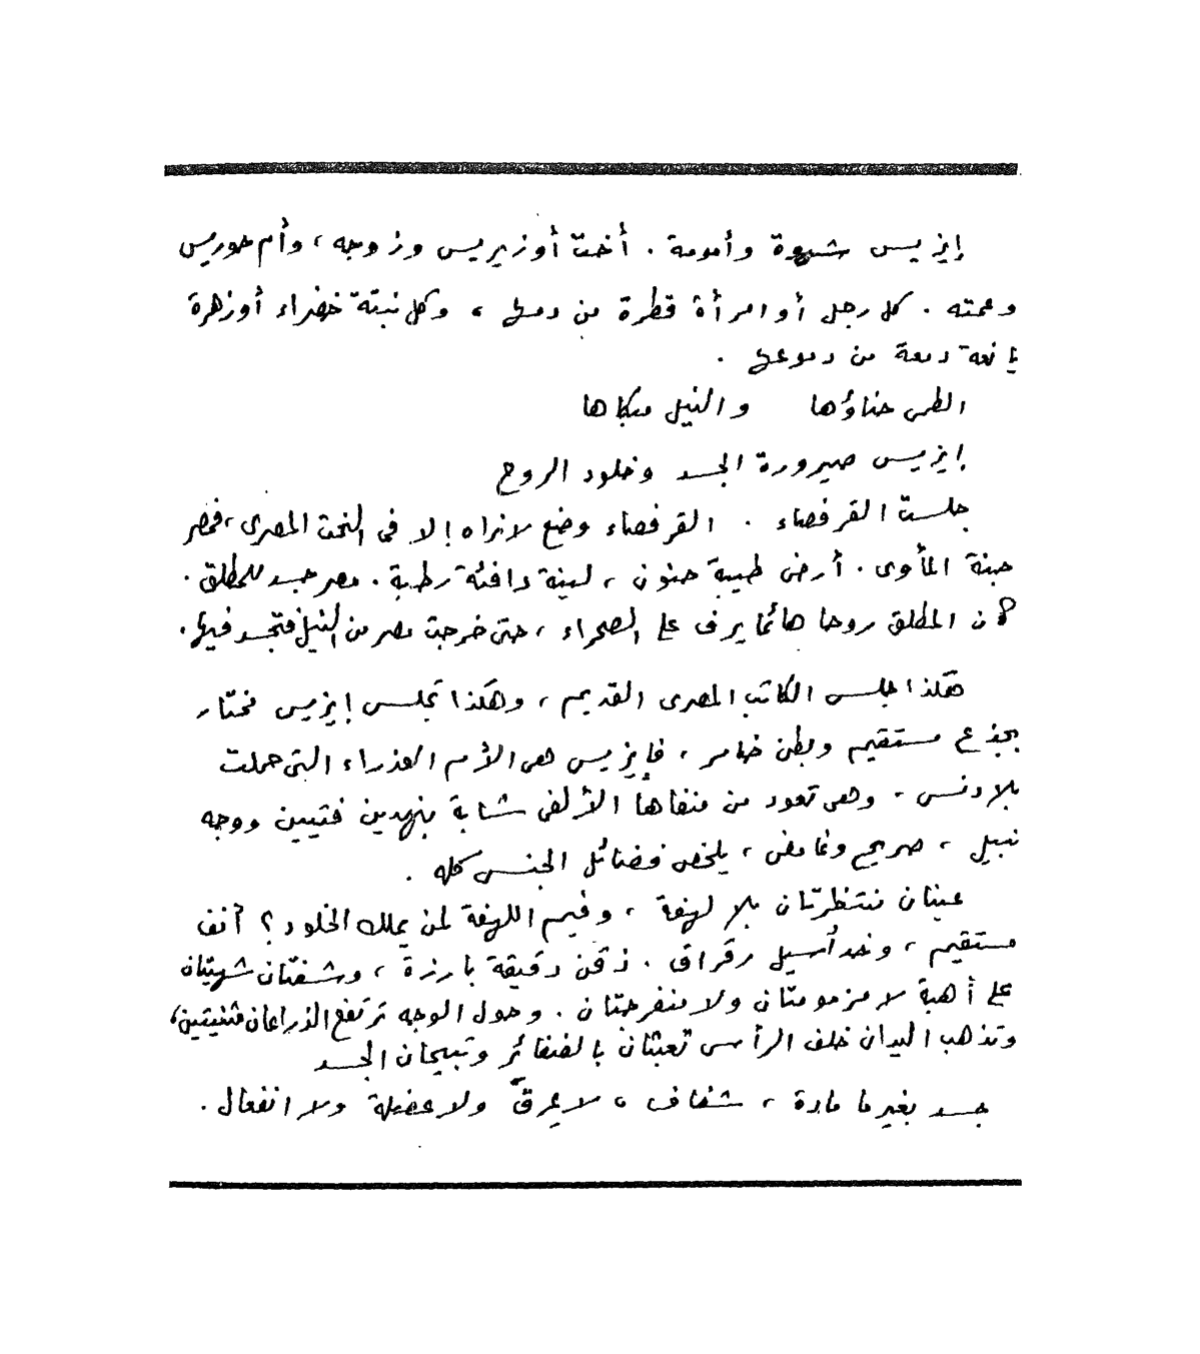 إيزيس شهوة وأمومة . أخت أوزيريس وزوجه ، وأم حوريس
وعمته . كل رجل أو امرأة قطرة من دمها ، وكل نبتة خضراء أو زهرة
يانعة دمعة من دموعها .
الطمى حناؤها والنيل مبكاها
إيزيس صيرورة الجسد وخلود الروح
جلست القرفصاء . القرفصاء وضع لا نراه إلا فى النحت المصرى ، فمصر
جنة المأوى . أرض طيبة حنون ، لينة دافئة رطبة . مصر جسد للمطلق .
كان المطلق روحا هائما يرف على الصحراء ، حتى خرجت مصر من النيل فتجسد فيها .
هكذا جلس الكاتب المصرى القديم ، وهكذا تجلس إيزيس مختار
بجذع مستقيم وبطن ضامر ، فإيزيس هى الأم العذراء التى حملت
بلا دنس . وهى تعود من منفاها الألفى شابة بنهدين فتيين ووجه
نبيل ، صريح وغامض ، يلخص فضائل الجنس كله .
عينان تنتظرتان بلا لهفة ، وفيم اللهفة لمن يملك الخلود ؟ أنف
مستقيم ، وخد أسيل رقراق . ذقن دقيقة بارزة ، وشفتان شهيتان
على أهبة لا مزمومتان ولا منفرجتان . وحول الوجه ترتفع الذراعان مثنيتين ،
وتذهب اليدان خلف الرأس تعبثان بالضفائر وتبيحان الجسد
جسد بغير ما مادة ، شفاف ، لا عرق ولا عضلة ولا انفعال .